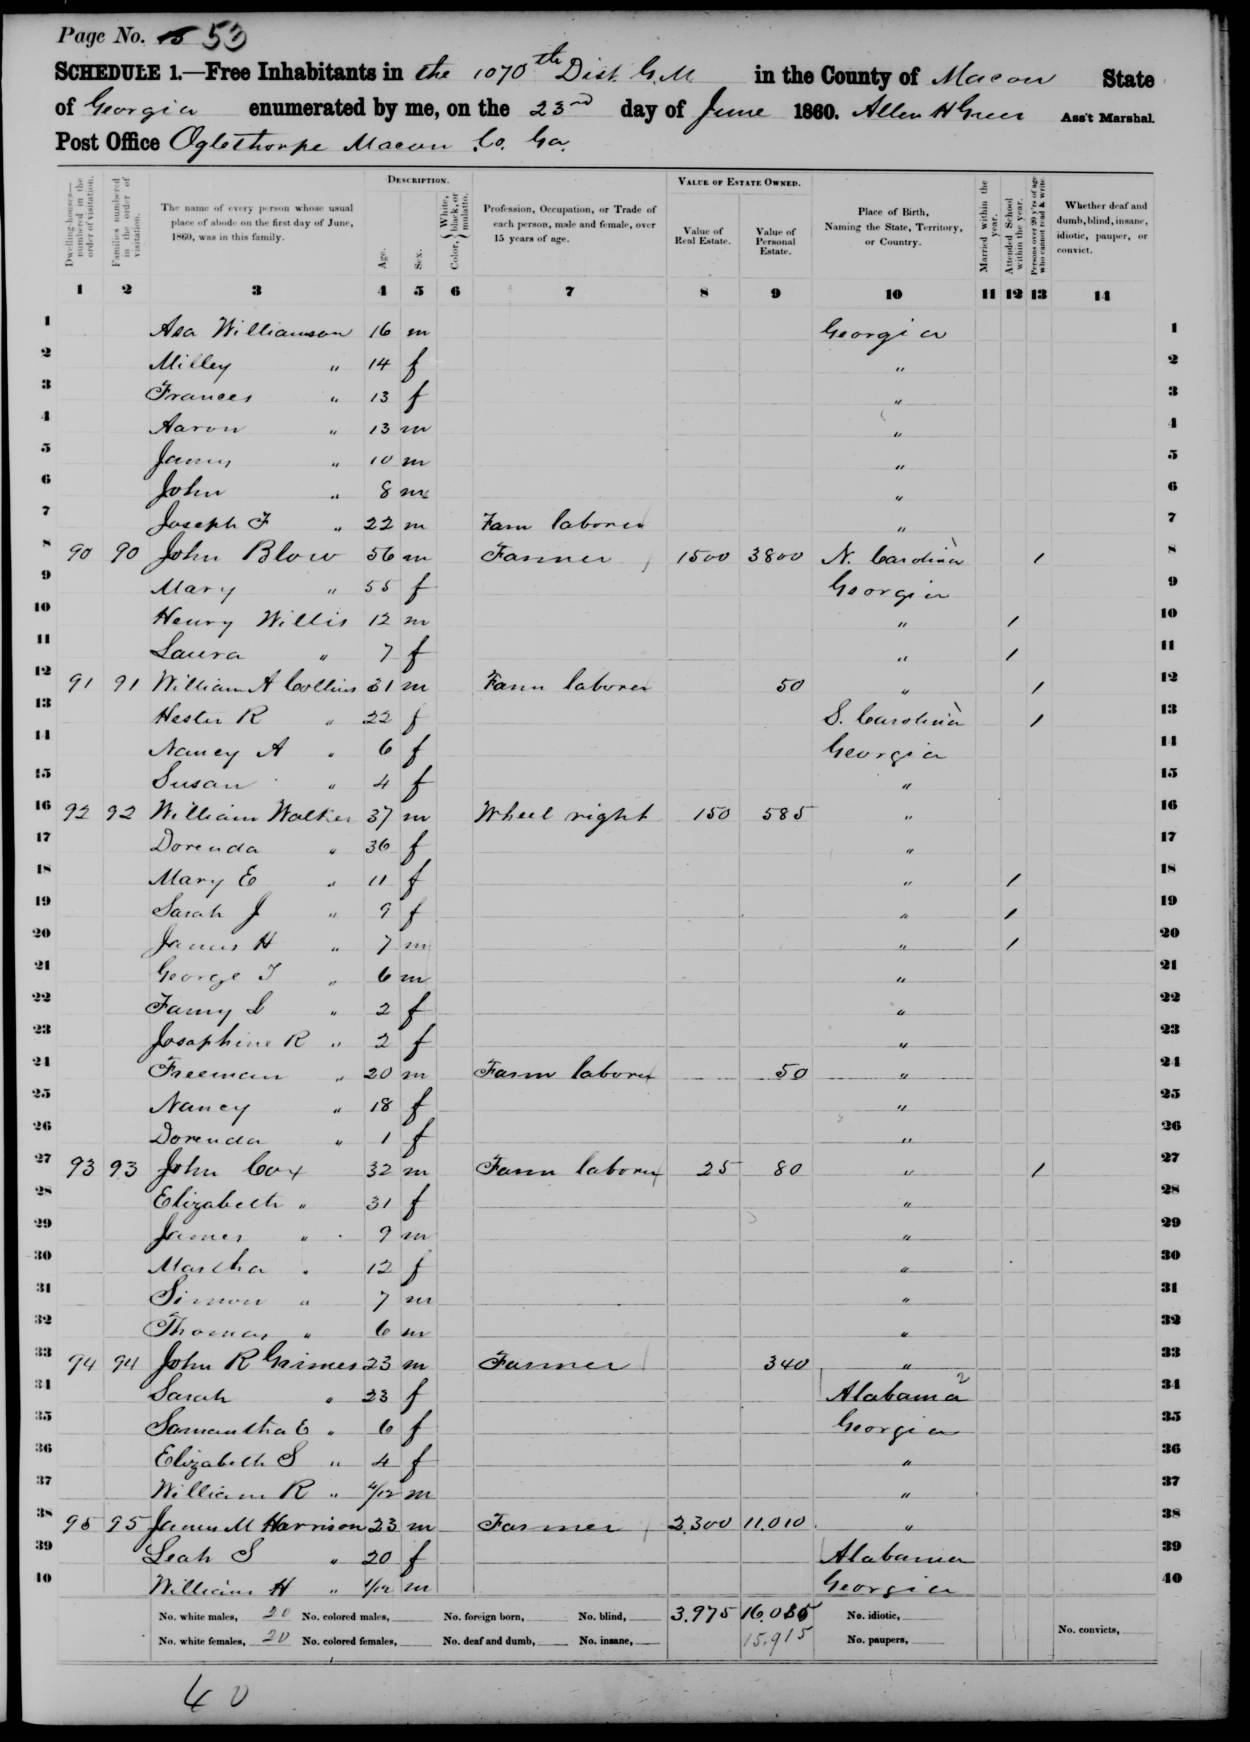 Page No. 15 53
SCHEDULE 1.—Free Inhabitants in the 1070th Dist G.M in the County of Macon State
of Georgia enumerated by me, on the 23rd day of June 1860. Allen H Greer Ass't Marshal.
Post Office Oglethorpe Macon Co. Ga.
Dwelling-houses—numbered in the order of visitation. Families numbered in the order of visitation. The name of every person whose usual place of abode on the first day of June, 1860, was in this family. DESCRIPTION. Age. Sex. Color, { White, black, or mulatto. Profession, Occupation, or Trade of each person, male and female, over 15 years of age. VALUE OF ESTATE OWNED. Value of Real Estate. Value of Personal Estate. Place of Birth, Naming the State, Territory, or Country. Married within the year. Attended School within the year. Persons over 20 y'rs of age who cannot read & write. Whether deaf and dumb, blind, insane, idiotic, pauper, or convict.
1 2 3 4 5 6 7 8 9 10 11 12 13 14
1 Asa Williamson 16 m Georgia 1
2 Milley " 14 f " 2
3 Frances " 13 f " 3
4 Aaron " 13 m " 4
5 James " 10 m " 5
6 John " 8 m " 6
7 Joseph F " 22 m Farm laborer " 7
8 90 90 John Blow 56 m Farmer 1500 3800 N. Carolina 1 8
9 Mary " 55 f Georgia 9
10 Henry Willis 12 m " 1 10
11 Laura " 7 f " 1 11
12 91 91 William A Collins 31 m Farm laborer 50 " 1 12
13 Hester R " 22 f S. Carolina 1 13
14 Nancy A " 6 f Georgia 14
15 Susan " 4 f " 15
16 92 92 William Walker 37 m Wheel right 150 585 " 16
17 Dorenda " 36 f " 17
18 Mary E " 11 f " 1 18
19 Sarah J " 9 f " 1 19
20 James H " 7 m " 1 20
21 George T " 6 m " 21
22 Fanny L " 2 f " 22
23 Josephine R " 2 f " 23
24 Freeman " 20 m Farm laborer 50 " 24
25 Nancy " 18 f " 25
26 Dorenda " 1 f " 26
27 93 93 John Cox 32 m Farm laborer 25 80 " 1 27
28 Elizabeth " 31 f " 28
29 James " 9 m " 29
30 Martha " 12 f " 30
31 Simon " 7 m " 31
32 Thomas " 6 m " 32
33 94 94 John R Grimes 23 m Farmer 340 " 33
34 Sarah " 23 f Alabama 2 34
35 Samantha E " 6 f Georgia 35
36 Elizabeth S " 4 f " 36
37 William R " 4/12 m " 37
38 95 95 James M Harrison 23 m Farmer 2,300 11.010 " 38
39 Leah S " 20 f Alabama 39
40 William H " 1/12 m Georgia 40
No. white males, 20 No. colored males, No. foreign born, No. blind, 3.975 No. idiotic,
No. white females, 20 No. colored females, No. deaf and dumb, No. insane, 15.915 No. paupers, No. convicts,
40